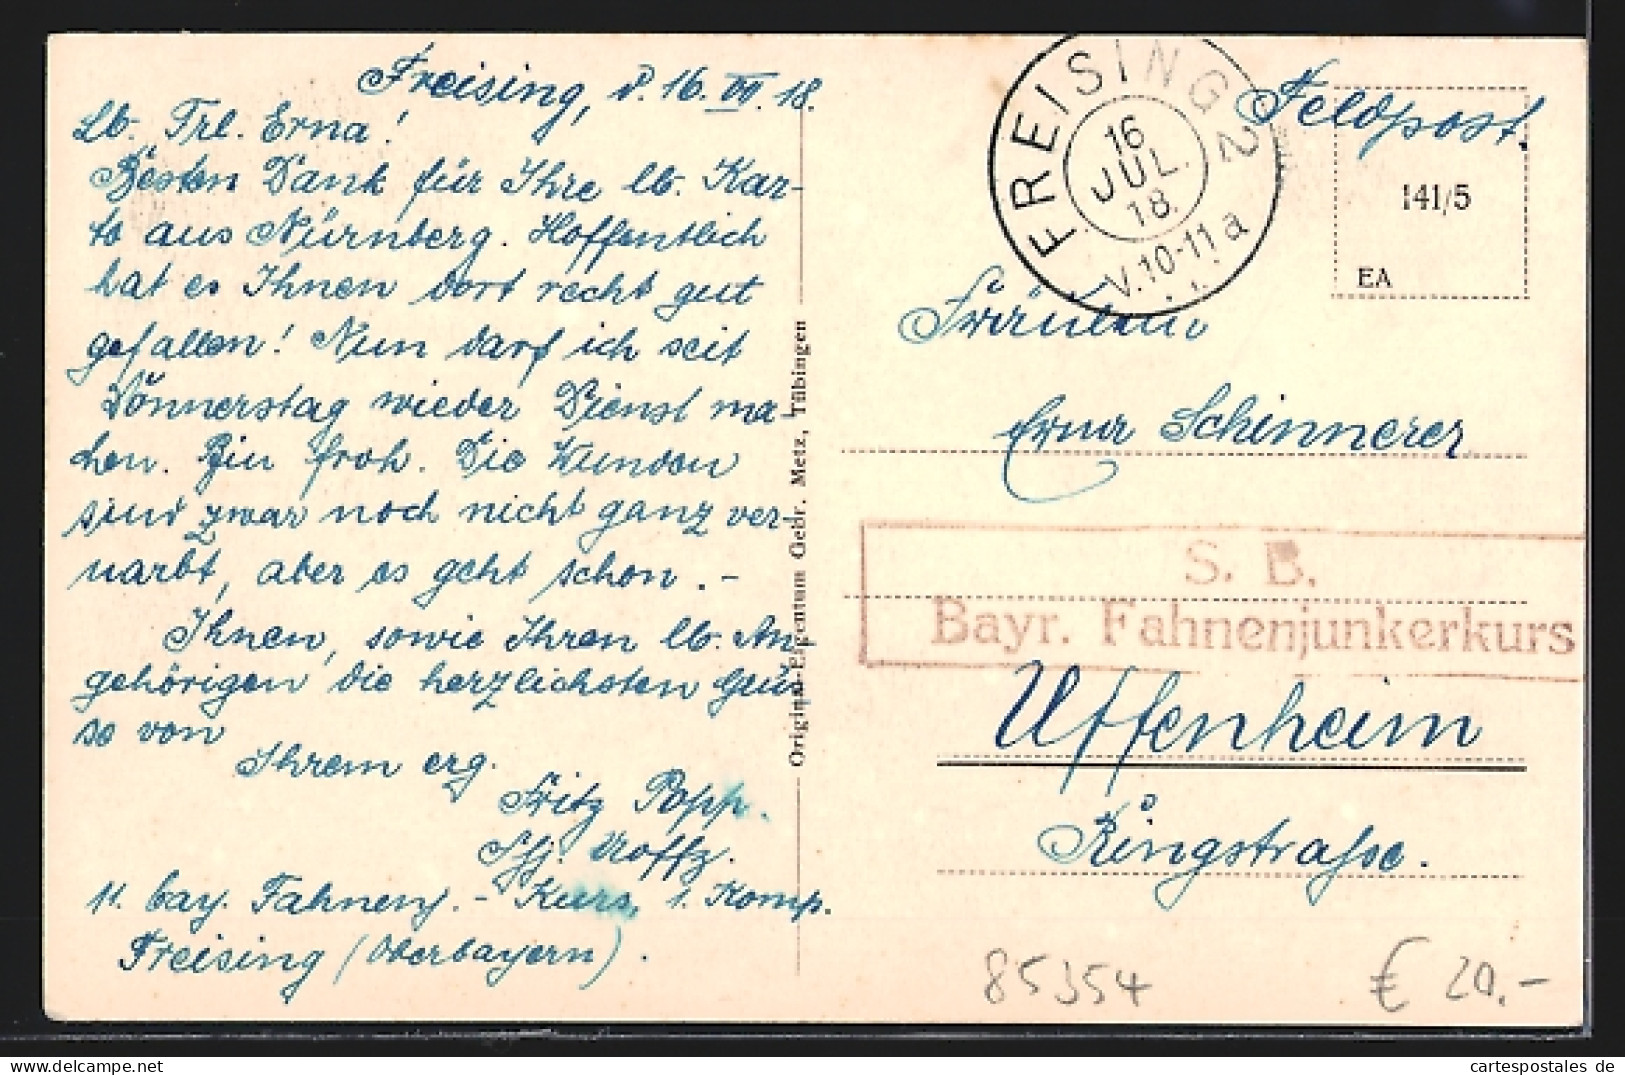 Freising, d. 16. VII. 18.
Lb. Frl. Erna!
Besten Dank für Ihre lb. Kar-
te aus Nürnberg. Hoffentlich
hat es Ihnen dort recht gut
gefallen! Nun darf ich seit
Donnerstag wieder Dienst ma-
chen. Bin froh. Die Wunden
sind zwar noch nicht ganz ver-
narbt, aber es geht schon. -
Ihnen, sowie Ihren lb. An-
gehörigen die herzlichsten Grüs-
se von
Ihrem erg.
Fritz Popp.
Fhj. Uoffz.
11. bay. Fahnenj. - Kurs, 1. Komp.
Freising (Oberbayern).
Original-Eigentum Gebr. Metz, Tübingen
FREISING 2
16
JUL.
18.
V. 10-11 a
Feldpost.
141/5
EA
Fräulein
Erna Schinnerer
S. B.
Bayr. Fahnenjunkerkurs
Uffenheim
Ringstrasse.
85354
€ 20.-
cartespostales de